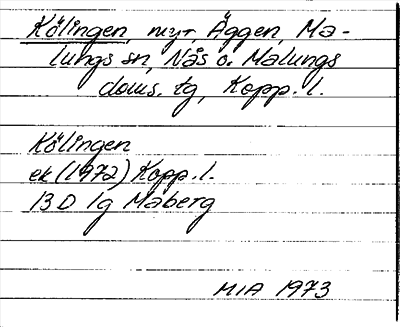 Kölingen, myr, Äggen, Ma-
lungs sn, Nås o. Malungs
doms. tg, Kopp. l.
Kölingen
ek (1972) Kopp. l.
13D 1g Maberg
MIA 1973